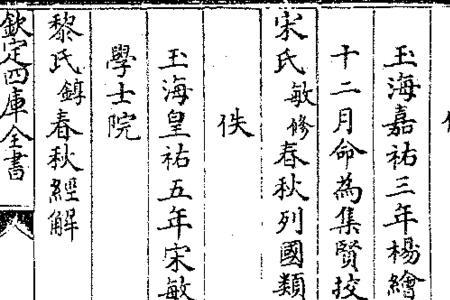 玉海嘉祐三年楊繪
十二月命為集賢挍
宋氏敏修春秋列國類
佚
玉海皇祐五年宋敏
學士院
黎氏錞春秋經解
欽定四庫全書